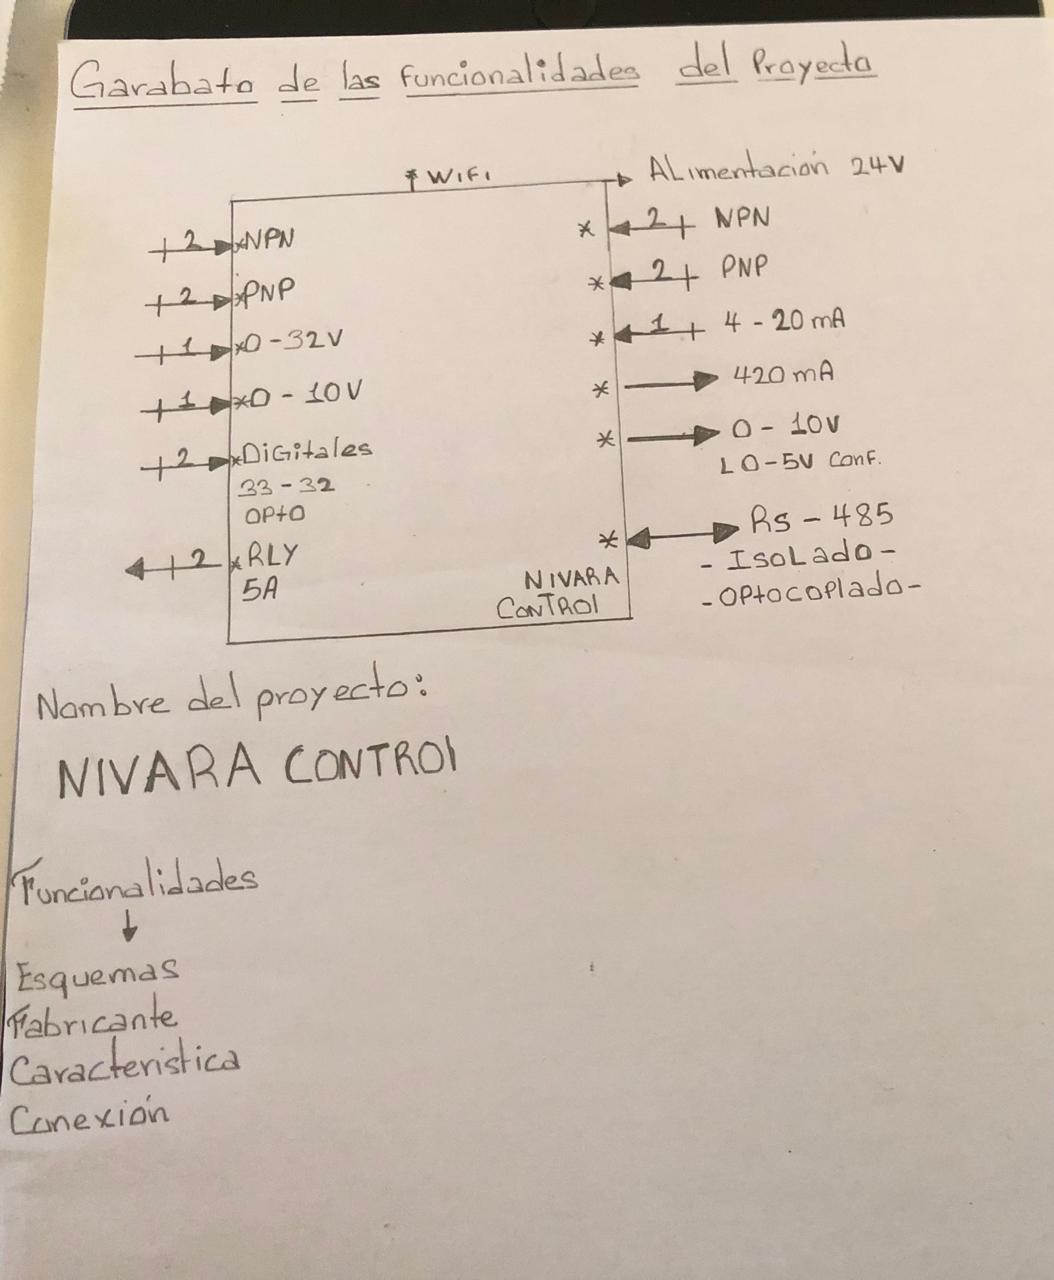 Garabato de las funcionalidades del Proyecto
* WiFi
ALimentación 24V
2 *NPN
2 *PNP
1 *0-32V
1 *0-10V
2 *DiGitales
33-32
OPtO
2 *RLY
5A
* 2 NPN
* 2 PNP
* 1 4-20mA
* 420mA
* 0-10V
L0-5V Conf.
* RS-485
- IsoLado -
- OPtOCOPlado -
NIVARA
CONTROl
Nombre del proyecto:
NIVARA CONTROl
Funcionalidades
Esquemas
Fabricante
Caracteristica
Conexión